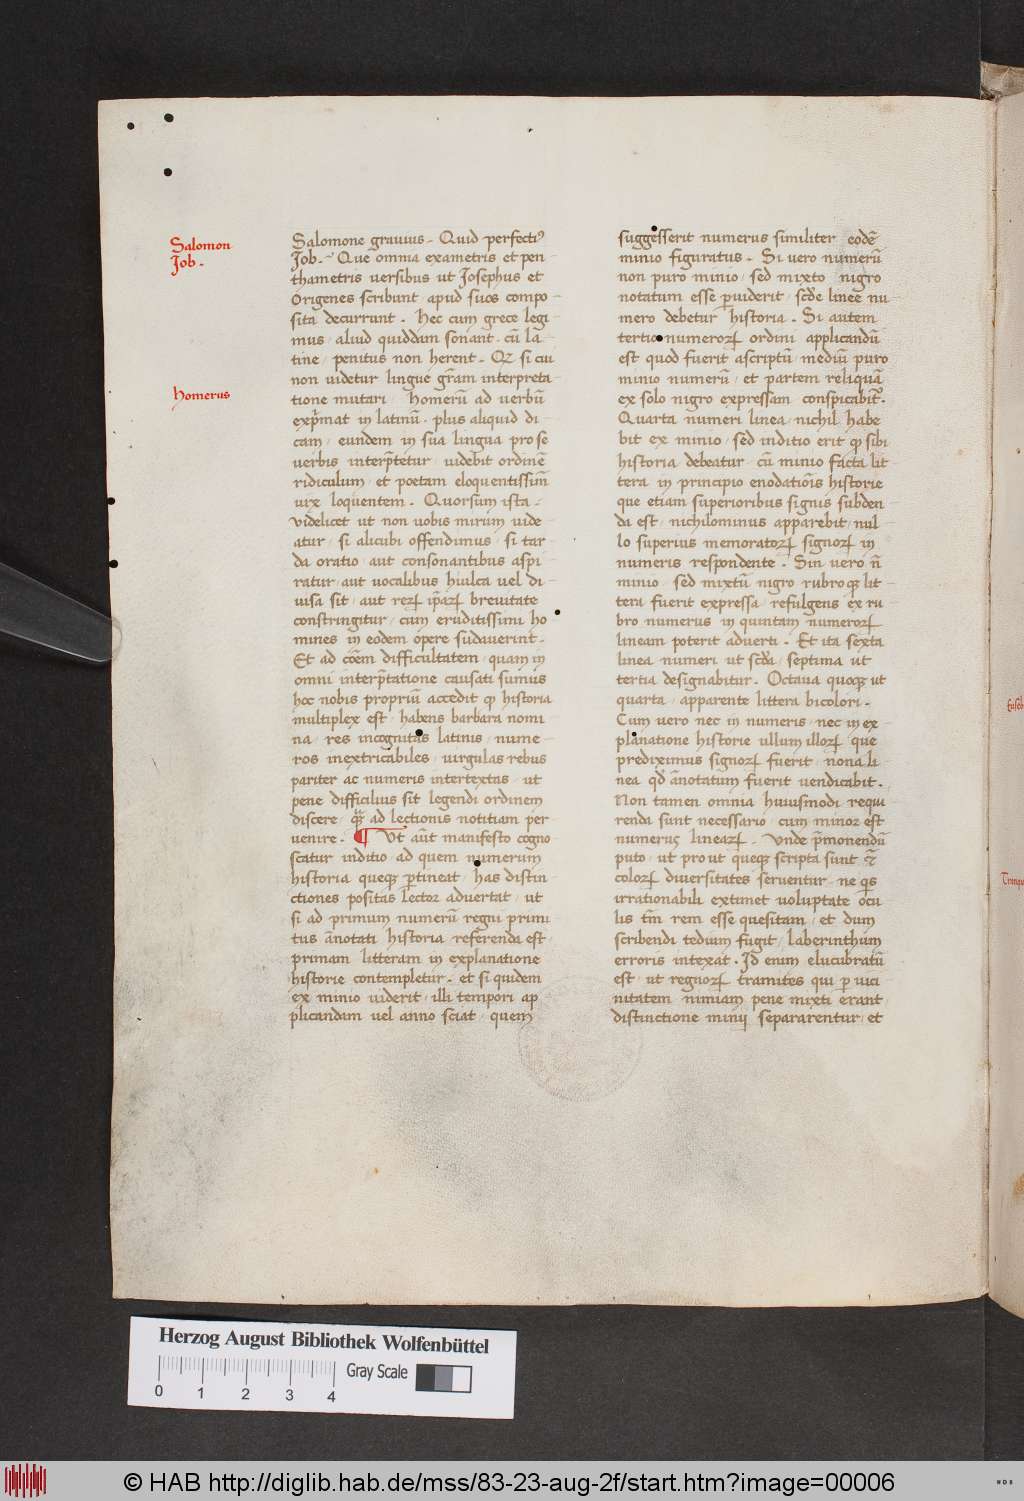 Salomon
Job.
Homerus
Salomone grauius. Quid perfectiꝰ
Job. Que omnia exametris et pen
thametris uersibus ut Josephus et
Origenes scribunt apud suos compo
sita decurrunt. Hec cum grece legi
mus, aliud quiddam sonant. cū la
tine, penitus non herent. Qꝫ si cui
non uidetur lingue gr̄am interpreta
tione mutari, Homerū ad uerbū
expͥmat in latinū. plus aliquid di
cam, eundem in sua lingua prose
uerbis interp̄tetur, uidebit ordinē
ridiculum, et poetam eloquentissim̄
uix loquentem. Quorsum ista.
videlicet ut non uobis mirum uide
atur, si alicubi offendimus, si tar
da oratio, aut consonantibus aspi
ratur, aut uocalibus hiulca uel di
uisa sit, aut reꝝ ip̄aꝝ breuitate
constringitur, cum eruditissimi ho
mines in eodem opere sudauerint.
Et ad cōēm difficultatem, quam in
omni interp̄tatione causati sumus
hoc nobis propriū accedit ꝙ historia
multiplex est, habens barbara nomi
na, res incognitas latinis, nume
ros inextricabiles, uirgulas rebus
pariter ac numeris intertextas, ut
pene difficilius sit legendi ordinem
discere, qͣꝫ ad lectionis notitiam per
uenire. ¶ Ut aūt manifesto cogno
scatur inditio ad quem numerum
historia queqꝫ ꝑtineat, has distin
ctiones positas lector aduertat, ut
si ad primum numerū regni primi
tus ānotati historia referenda est,
primam litteram in explanatione
historie contempletur. et si quidem
ex minio uiderit, illi tempori ap
plicandam uel anno sciat, quem
suggesserit numerus similiter eodē
minio figuratus. Si uero numerū
non puro minio, sed mixto nigro
notatum esse ꝑuiderit, sc̄de linee nu
mero debetur historia. Si autem
tertio numeroꝝ ordini applicandū
est quod fuerit ascriptū, mediū puro
minio numerū, et partem reliquā
ex solo nigro expressam conspicabitᷣ.
Quarta numeri linea, nichil habe
bit ex minio, sed inditio erit ꝙ sibi
historia debeatur, cū minio facta lit
tera in principio enodatiōis historie
que etiam superioribus signis subden
da est, nichilominus apparebit, nul
lo superius memoratoꝝ signoꝝ in
numeris respondente. Sin uero n̄
minio, sed mixtū nigro rubroqꝫ lit
teri fuerit expressa, refulgens ex ru
bro numerus in quintam numeroꝝ
lineam poterit aduerti. Et ita sexta
linea numeri ut sc̄da, septima ut
tertia designabitur. Octaua quoqꝫ ut
quarta, apparente littera bicolori.
Cum uero nec in numeris, nec in ex
planatione historie ullum illoꝝ que
prediximus signoꝝ fuerit, nona li
nea qd̄ ānotatum fuerit uendicabit.
Non tamen omnia huiusmodi requi
renda sunt necessario, cum minor est
numerus lineaꝝ. Unde p̄monendū
puto, ut prout queqꝫ scripta sunt ē
coloꝝ diuersitates seruentur, ne qͥs
irrationabili extimet uoluptate ocu
lis tm̄ rem esse quesitam, et dum
scribendi tedium fugit, laberinthum
erroris intexat. Id enim elucubratū
est, ut regnoꝝ tramites qui ꝑ uici
nitatem nimiam pene mixti erant,
distinctione minij separarentur, et
Herzog August Bibliothek Wolfenbüttel
0 1 2 3 4
Gray Scale
© HAB http://diglib.hab.de/mss/83-23-aug-2f/start.htm?image=00006